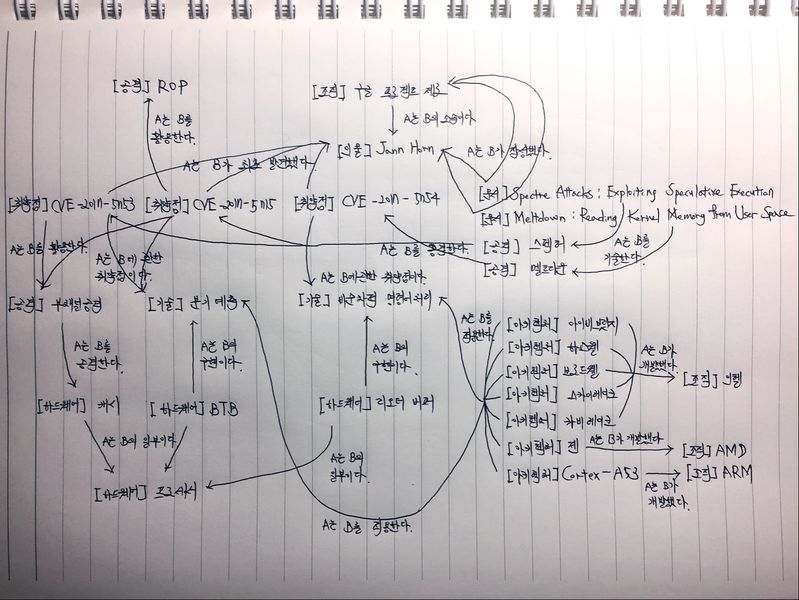 [공격] ROP
[조직] 구글 프로젝트 제로
A는 B를
활용한다.
A는 B의 소속이다.
A는 B가 최초 발견했다.
[인물] Jann Horn
A는 B가 작성했다.
[문서] Spectre Attacks: Exploiting Speculative Execution
[문서] Meltdown: Reading Kernel Memory from User Space
[취약점] CVE-2017-5753
[취약점] CVE-2017-5715
[취약점] CVE-2017-5754
A는 B를 활용한다.
A는 B에 관한
취약점이다.
A는 B를 공격한다.
[공격] 스펙터
[공격] 멜트다운
A는 B를
기술한다.
A는 B에 관한 취약점이다.
[공격] 부채널 공격
[기술] 분기 예측
[기술] 비순차적 명령어 처리
A는 B를
적용한다.
A는 B를
공격한다.
A는 B의
구현이다.
A는 B의
구현이다.
[아키텍처] 아이비브릿지
[아키텍처] 하스웰
[아키텍처] 브로드웰
[아키텍처] 스카이레이크
[아키텍처] 카비레이크
A는 B가
개발했다.
[조직] 인텔
[하드웨어] 캐시
[하드웨어] BTB
[하드웨어] 리오더 버퍼
[아키텍처] 젠
A는 B가 개발했다.
[조직] AMD
A는 B의 일부이다.
A는 B의
일부이다.
[아키텍처] Cortex-A53
[조직] ARM
A는 B가
개발했다.
[하드웨어] 프로세서
A는 B를 적용한다.